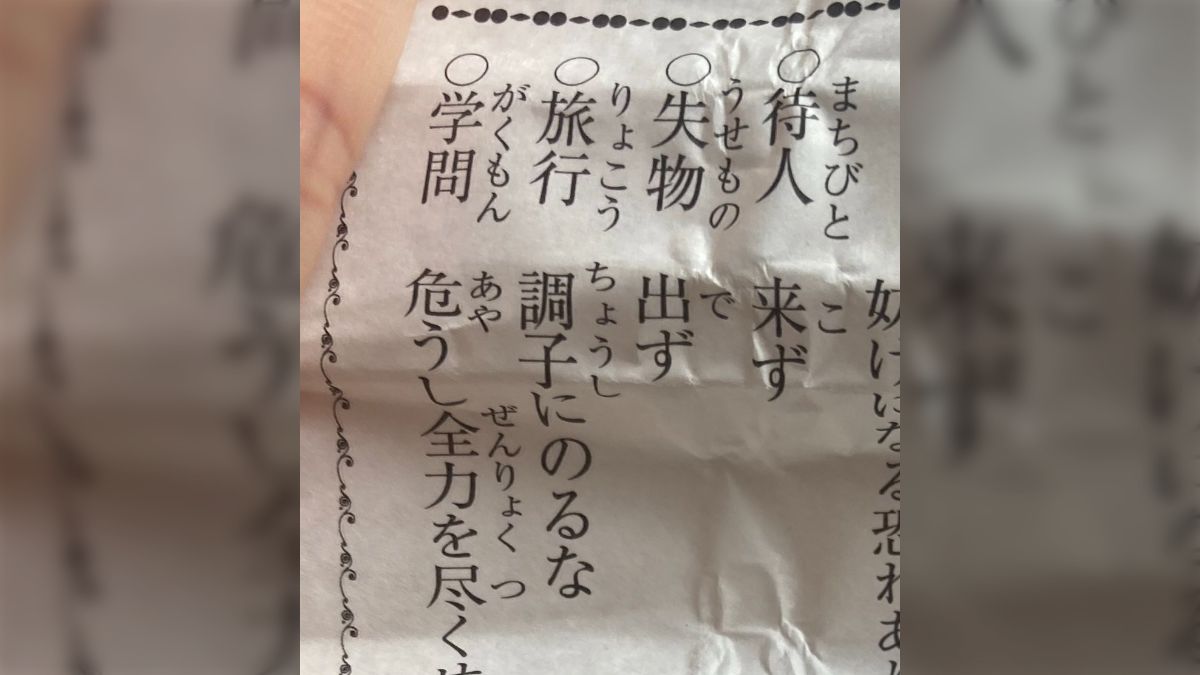 妨げになる恐れあ
まちびと　こ
○待人　来ず
うせもの　で
○失物　出ず
りょこう　ちょうし
○旅行　調子にのるな
がくもん　あや　ぜんりょく　つ
○学問　危うし全力を尽く